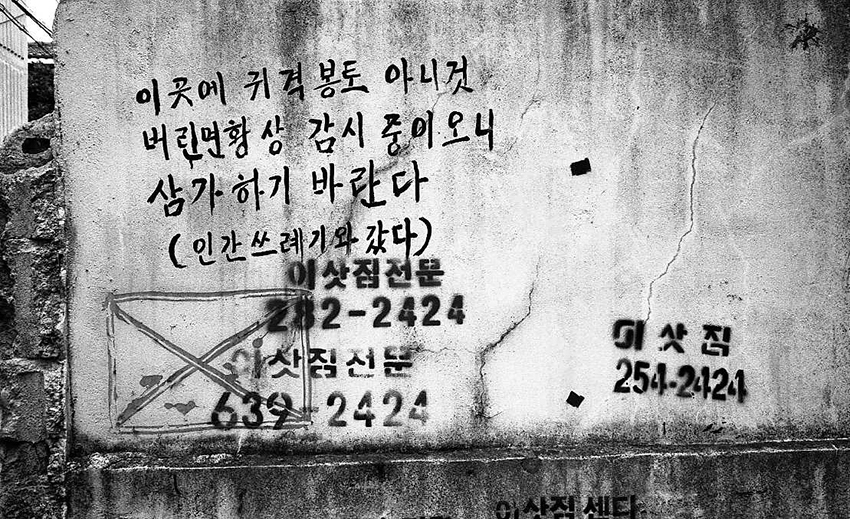 이곳에 규격봉토 아니것
버린면 황상 감시 중이오니
삼가하기 바란다
(인간쓰레기와 같다)
이삿짐전문
282-2424
이삿짐전문
639-2424
이삿짐
254-2424
이삿짐센타